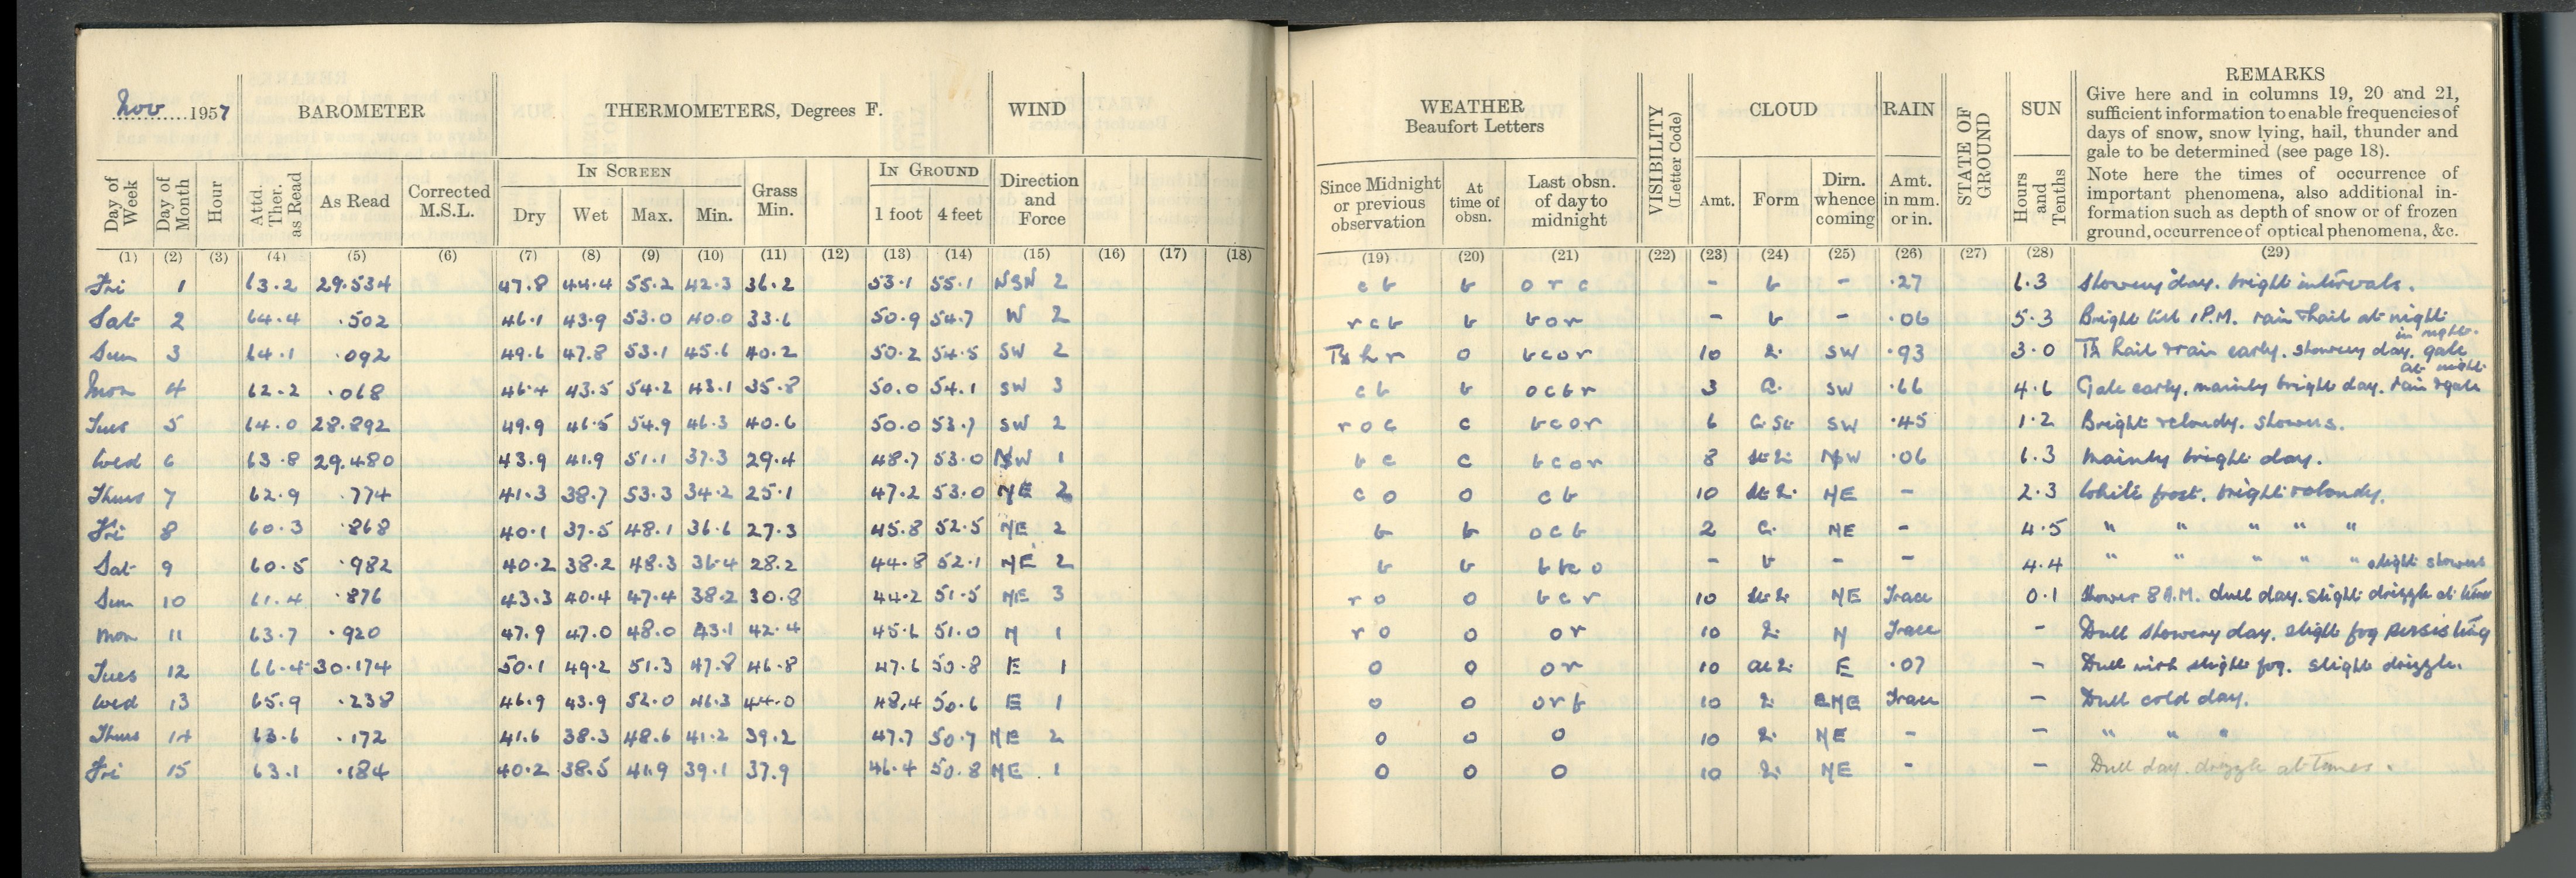 Nov 1957 BAROMETER THERMOMETERS, Degrees F. WIND
IN SCREEN IN GROUND
Day of Week Day of Month Hour Attd. Ther. as Read As Read Corrected M.S.L. Dry Wet Max. Min. Grass Min. 1 foot 4 feet Direction and Force
(1) (2) (3) (4) (5) (6) (7) (8) (9) (10) (11) (12) (13) (14) (15) (16) (17) (18)
Fri 1 63.2 29.534 47.8 44.4 55.2 42.3 36.2 53.1 55.1 2
Sat 2 64.4 .502 46.1 43.9 53.0 40.0 33.6 50.9 54.7 W 2
Sun 3 64.1 .092 49.6 47.8 53.1 45.6 40.2 50.2 54.5 SW 2
Mon 4 62.2 .068 46.4 43.5 54.2 43.1 35.8 50.0 54.1 SW 3
Tues 5 64.0 28.892 49.9 46.5 54.9 46.3 40.6 50.0 53.7 SW 2
Wed 6 63.8 29.480 43.9 41.9 51.1 37.3 29.4 48.7 53.0 1
Thurs 7 62.9 .774 41.3 38.7 53.3 34.2 25.1 47.2 53.0 NE 2
Fri 8 60.3 .868 40.1 37.5 48.1 36.6 27.3 45.8 52.5 NE 2
Sat 9 60.5 .982 40.2 38.2 48.3 36.4 28.2 44.8 52.1 NE 2
Sun 10 61.4 .876 43.3 40.4 47.4 38.2 30.8 44.2 51.5 NE 3
Mon 11 63.7 .920 47.9 47.0 48.0 43.1 42.4 45.6 51.0 N 1
Tues 12 66.4 30.174 50.1 49.2 51.3 47.8 46.8 47.6 50.8 E 1
Wed 13 65.9 .238 46.9 43.9 52.0 46.3 44.0 48.4 50.6 E 1
Thurs 14 63.6 .172 41.6 38.3 48.6 41.2 39.2 47.7 50.7 NE 2
Fri 15 63.1 .184 40.2 38.5 41.9 39.1 37.9 46.4 50.8 NE 1
WEATHER
Beaufort Letters
VISIBILITY (Letter Code) CLOUD RAIN STATE OF GROUND SUN
REMARKS
Give here and in columns 19, 20 and 21,
sufficient information to enable frequencies of
days of snow, snow lying, hail, thunder and
gale to be determined (see page 18).
Note here the times of occurrence of
important phenomena, also additional in-
formation such as depth of snow or of frozen
ground, occurrence of optical phenomena, &c.
Since Midnight or previous observation At time of obsn. Last obsn. of day to midnight Amt. Form Dirn. whence coming Amt. in mm. or in. Hours and Tenths
(19) (20) (21) (22) (23) (24) (25) (26) (27) (28) (29)
c b b o r c - b - .27 6.3 Showery day. bright intervals.
r c b b b o r - b - .06 5.3 Bright till 1 P.M. rain & hail at night
h r o b c o r 10 SW .93 3.0 Th hail & rain early. showery day. gale in night.
c b b o c b r 3 SW .66 4.6 Gale early. mainly bright day. rain & gale at night
r o c c b c o r 6 SW .45 1.2 Bright & cloudy. showers.
b c c b c o r 8 .06 6.3 Mainly bright day.
c o o c b 10 NE - 2.3 White frost. bright & cloudy.
b b o c b 2 NE - 4.5 " " " " "
b b - b - - 4.4 " " " " " slight showers
r o o b c r 10 NE Trace 0.1 Shower 8 A.M. dull day. slight drizzle at times
r o o o r 10 N Trace - Dull showery day. slight fog persisting
o o o r 10 E .07 - Dull with slight fog. slight drizzle.
o o o r b 10 ENE Trace - Dull cold day.
o o o 10 NE - - " " "
o o o 10 NE - - Dull day. drizzle at times.